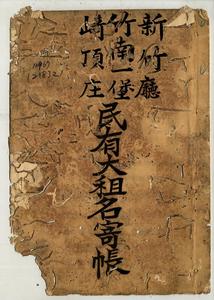 新竹廳
竹南一堡
崎頂庄
民有大租名寄帳